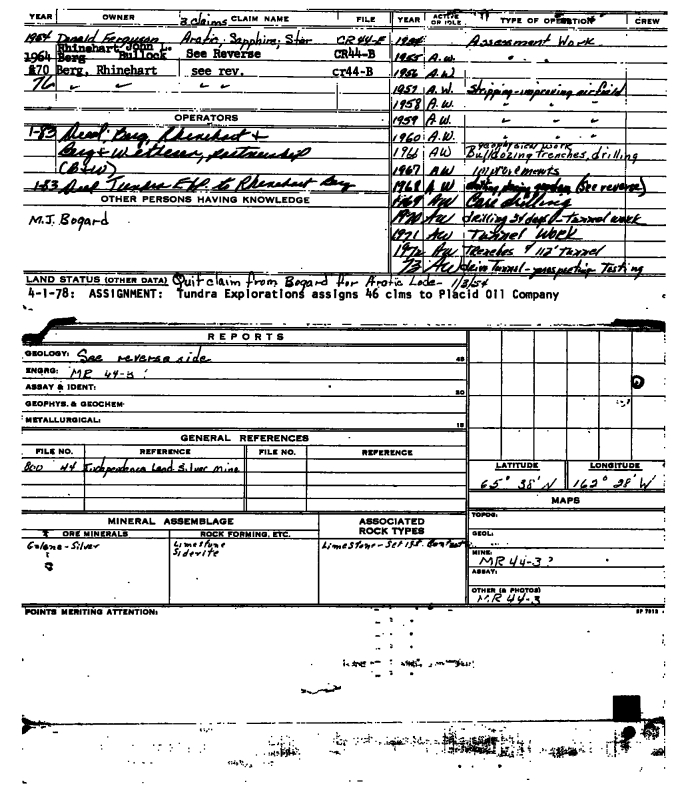 YEAR OWNER 3 Claims CLAIM NAME FILE YEAR ACTIVE OR IDLE TYPE OF OPERATION CREW
1954 Donald Ferguson Arctic, Sapphire, Star CR 44-E Assessment Work
Rhinehart John L.
1964 Berg Bullock See Reverse CR44-B 1955 A.W. " "
&70 Berg, Rhinehart see rev. cr44-B 1956 A.W.
76 " " " 1957 A.W. Stripping-improving airfield
1958 A.W. " "
OPERATORS 1959 A.W. " "
1-83 Deed; Berg, Rhinehart & 1960 A.W. " "
Berg & Wilhelm, partnership 1966 AW geophysical work Bulldozing trenches, drilling
(B&W) 1967 AW improvements
1-83 Deed Tundra Expl. to Rhinehart Berg 1968 A W (See reverse)
OTHER PERSONS HAVING KNOWLEDGE 1969 AW Core drilling
M.J. Bogard 1970 AW drilling 21 days - tunnel work
1971 AW Tunnel Work
1972 AW Trenches & 112' Tunnel
73 AW drive Tunnel - prospecting Testing
LAND STATUS (OTHER DATA) Quit claim from Bogard for Arctic Lode - 1/3/54
4-1-78: ASSIGNMENT: Tundra Explorations assigns 46 clms to Placid Oil Company
REPORTS
GEOLOGY: See reverse side 45
ENGRG: MR 44-3
ASSAY & IDENT: 20
GEOPHYS. & GEOCHEM.
METALLURGICAL: 15
GENERAL REFERENCES
FILE NO. REFERENCE FILE NO. REFERENCE
800 44 Independence Lead Silver Mine
LATITUDE LONGITUDE
65° 38' N 162° 28' W
MAPS
TOPOG:
MINERAL ASSEMBLAGE ASSOCIATED ROCK TYPES
ORE MINERALS ROCK FORMING, ETC. GEOL:
Galena-Silver Limestone Limestone - Schist Contact
Siderite
MINE:
MR 44-3?
ASSAY:
OTHER (& PHOTOS)
MR 44-3
POINTS MERITING ATTENTION: